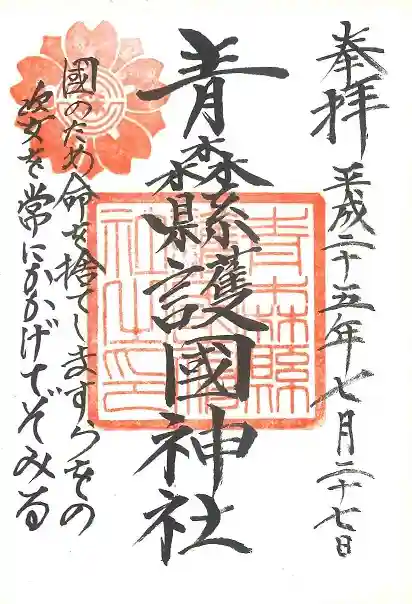 奉拝 平成二十五年七月二十七日
青森縣護國神社
國のため命を捨てしますらをの
姿を常にかかげてぞみる
青森縣護國神社之印